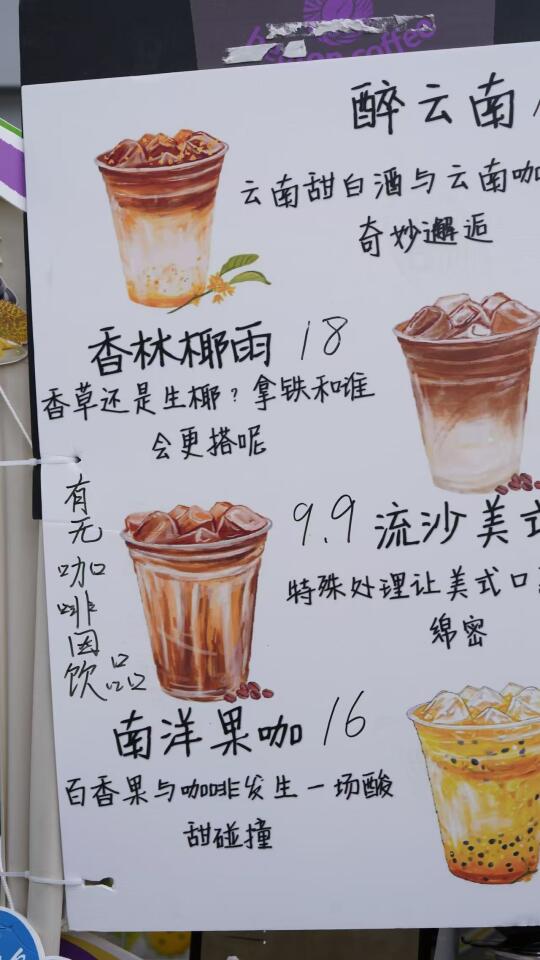 coffee
醉云南
云南甜白酒与云南咖
奇妙邂逅
香林椰雨 18
香草还是生椰？拿铁和谁
会更搭呢
有无咖啡因饮品
9.9 流沙美式
特殊处理让美式口
绵密
南洋果咖 16
百香果与咖啡发生一场酸
甜碰撞